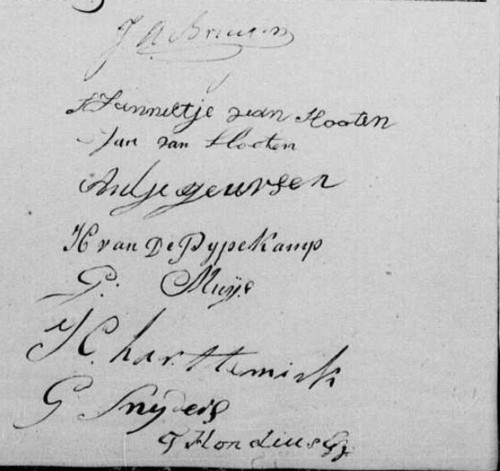 J A Bruins
Hannertje van Hooten
Jan van Hooten
Antje geursen
H van De Pypekamp
G. Muijs
H. har. Hemink
G Snyders
T Hondius Gz